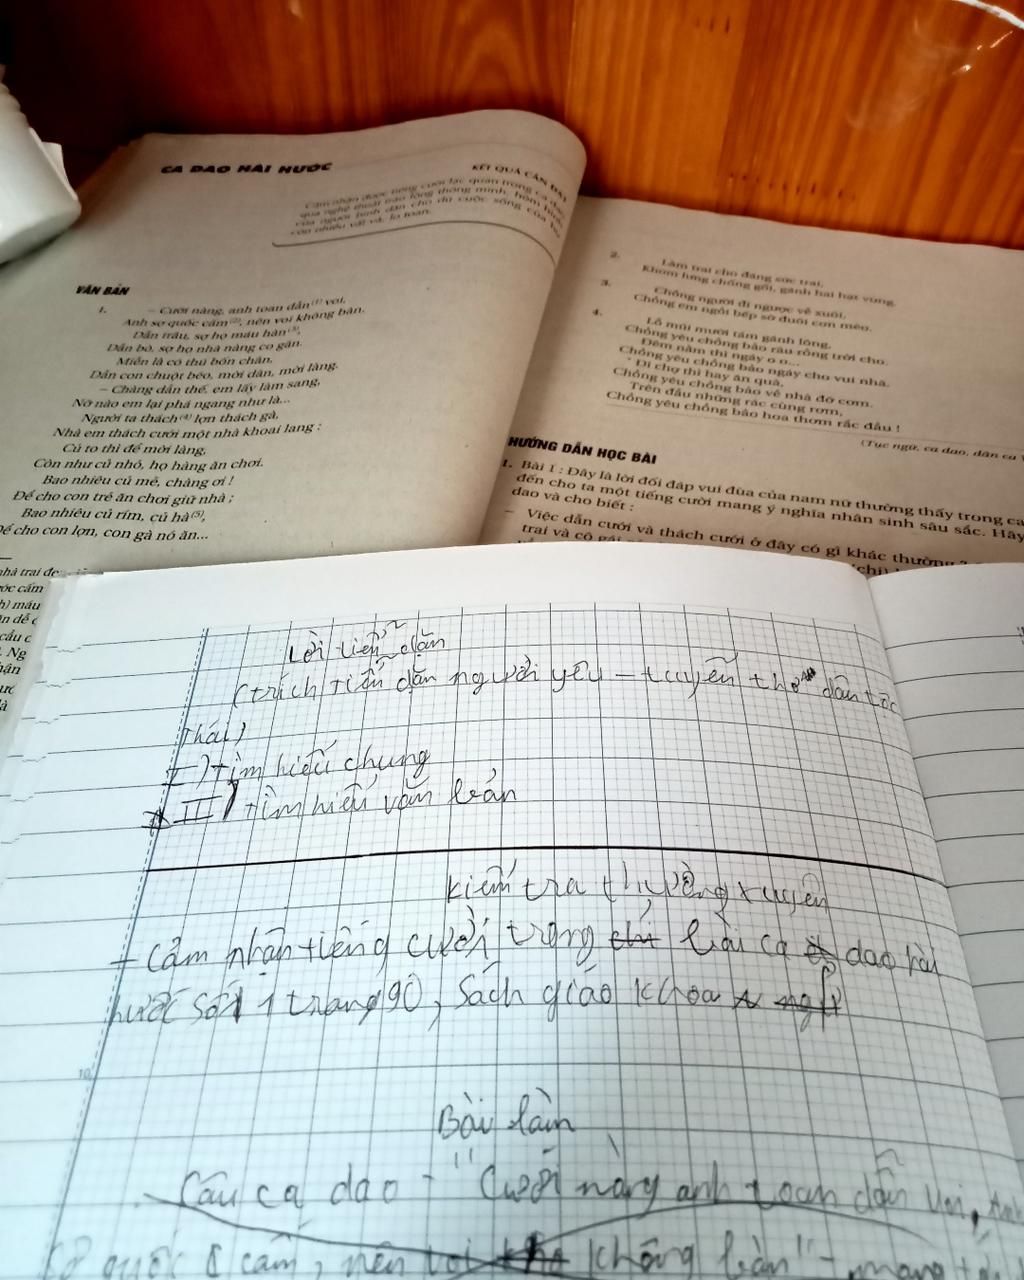 CA DAO HÀI HƯỚC
KẾT QUẢ CẦN ĐẠT
Cảm nhận được tiếng cười lạc quan trong ca dao
qua nghệ thuật trào lộng thông minh, hóm hỉnh
của người bình dân cho dù cuộc sống của họ
còn nhiều vất vả, lo toan.
VĂN BẢN
1. – Cưới nàng, anh toan dẫn(1) voi,
Anh sợ quốc cấm(2), nên voi không bàn.
Dẫn trâu, sợ họ máu hàn(3),
Dẫn bò, sợ họ nhà nàng co gân.
Miễn là có thú bốn chân,
Dẫn con chuột béo, mời dân, mời làng.
– Chàng dẫn thế, em lấy làm sang,
Nỡ nào em lại phá ngang như là...
Người ta thách(4) lợn thách gà,
Nhà em thách cưới một nhà khoai lang :
Củ to thì để mời làng,
Còn như củ nhỏ, họ hàng ăn chơi.
Bao nhiêu củ mẻ, chàng ơi !
Để cho con trẻ ăn chơi giữ nhà ;
Bao nhiêu củ rím, củ hà(5),
Để cho con lợn, con gà nó ăn...
nhà trai
cấm
máu
cầu
Ng
2. Làm trai cho đáng sức trai,
Khom lưng chống gối, gánh hai hạt vừng.
3. Chồng người đi ngược về xuôi,
Chồng em ngồi bếp sờ đuôi con mèo.
4. Lỗ mũi mười tám gánh lông,
Chồng yêu chồng bảo râu rồng trời cho.
Đêm nằm thì ngáy o o...
Chồng yêu chồng bảo ngáy cho vui nhà.
Đi chợ thì hay ăn quà,
Chồng yêu chồng bảo về nhà đỡ cơm.
Trên đầu những rác cùng rơm,
Chồng yêu chồng bảo hoa thơm rắc đầu !
(Tục ngữ, ca dao, dân ca
HƯỚNG DẪN HỌC BÀI
1. Bài 1 : Đây là lời đối đáp vui đùa của nam nữ thường thấy trong ca
đến cho ta một tiếng cười mang ý nghĩa nhân sinh sâu sắc. Hãy
dao và cho biết :
– Việc dẫn cưới và thách cưới ở đây có gì khác thường
trai và cô gái
Lời tiễn dặn
(trích tiễn dặn người yêu – truyện thơ dân tộc
thái)
I) tìm hiểu chung
II) tìm hiểu văn bản
kiểm tra thường xuyên
– Cảm nhận tiếng cười trong bài ca dao hài
hước số 1 trang 90, Sách giáo khoa
Bài làm
Câu ca dao - "Cưới này anh toan dẫn voi, Anh
sợ quốc cấm, nên voi không bàn" – mang